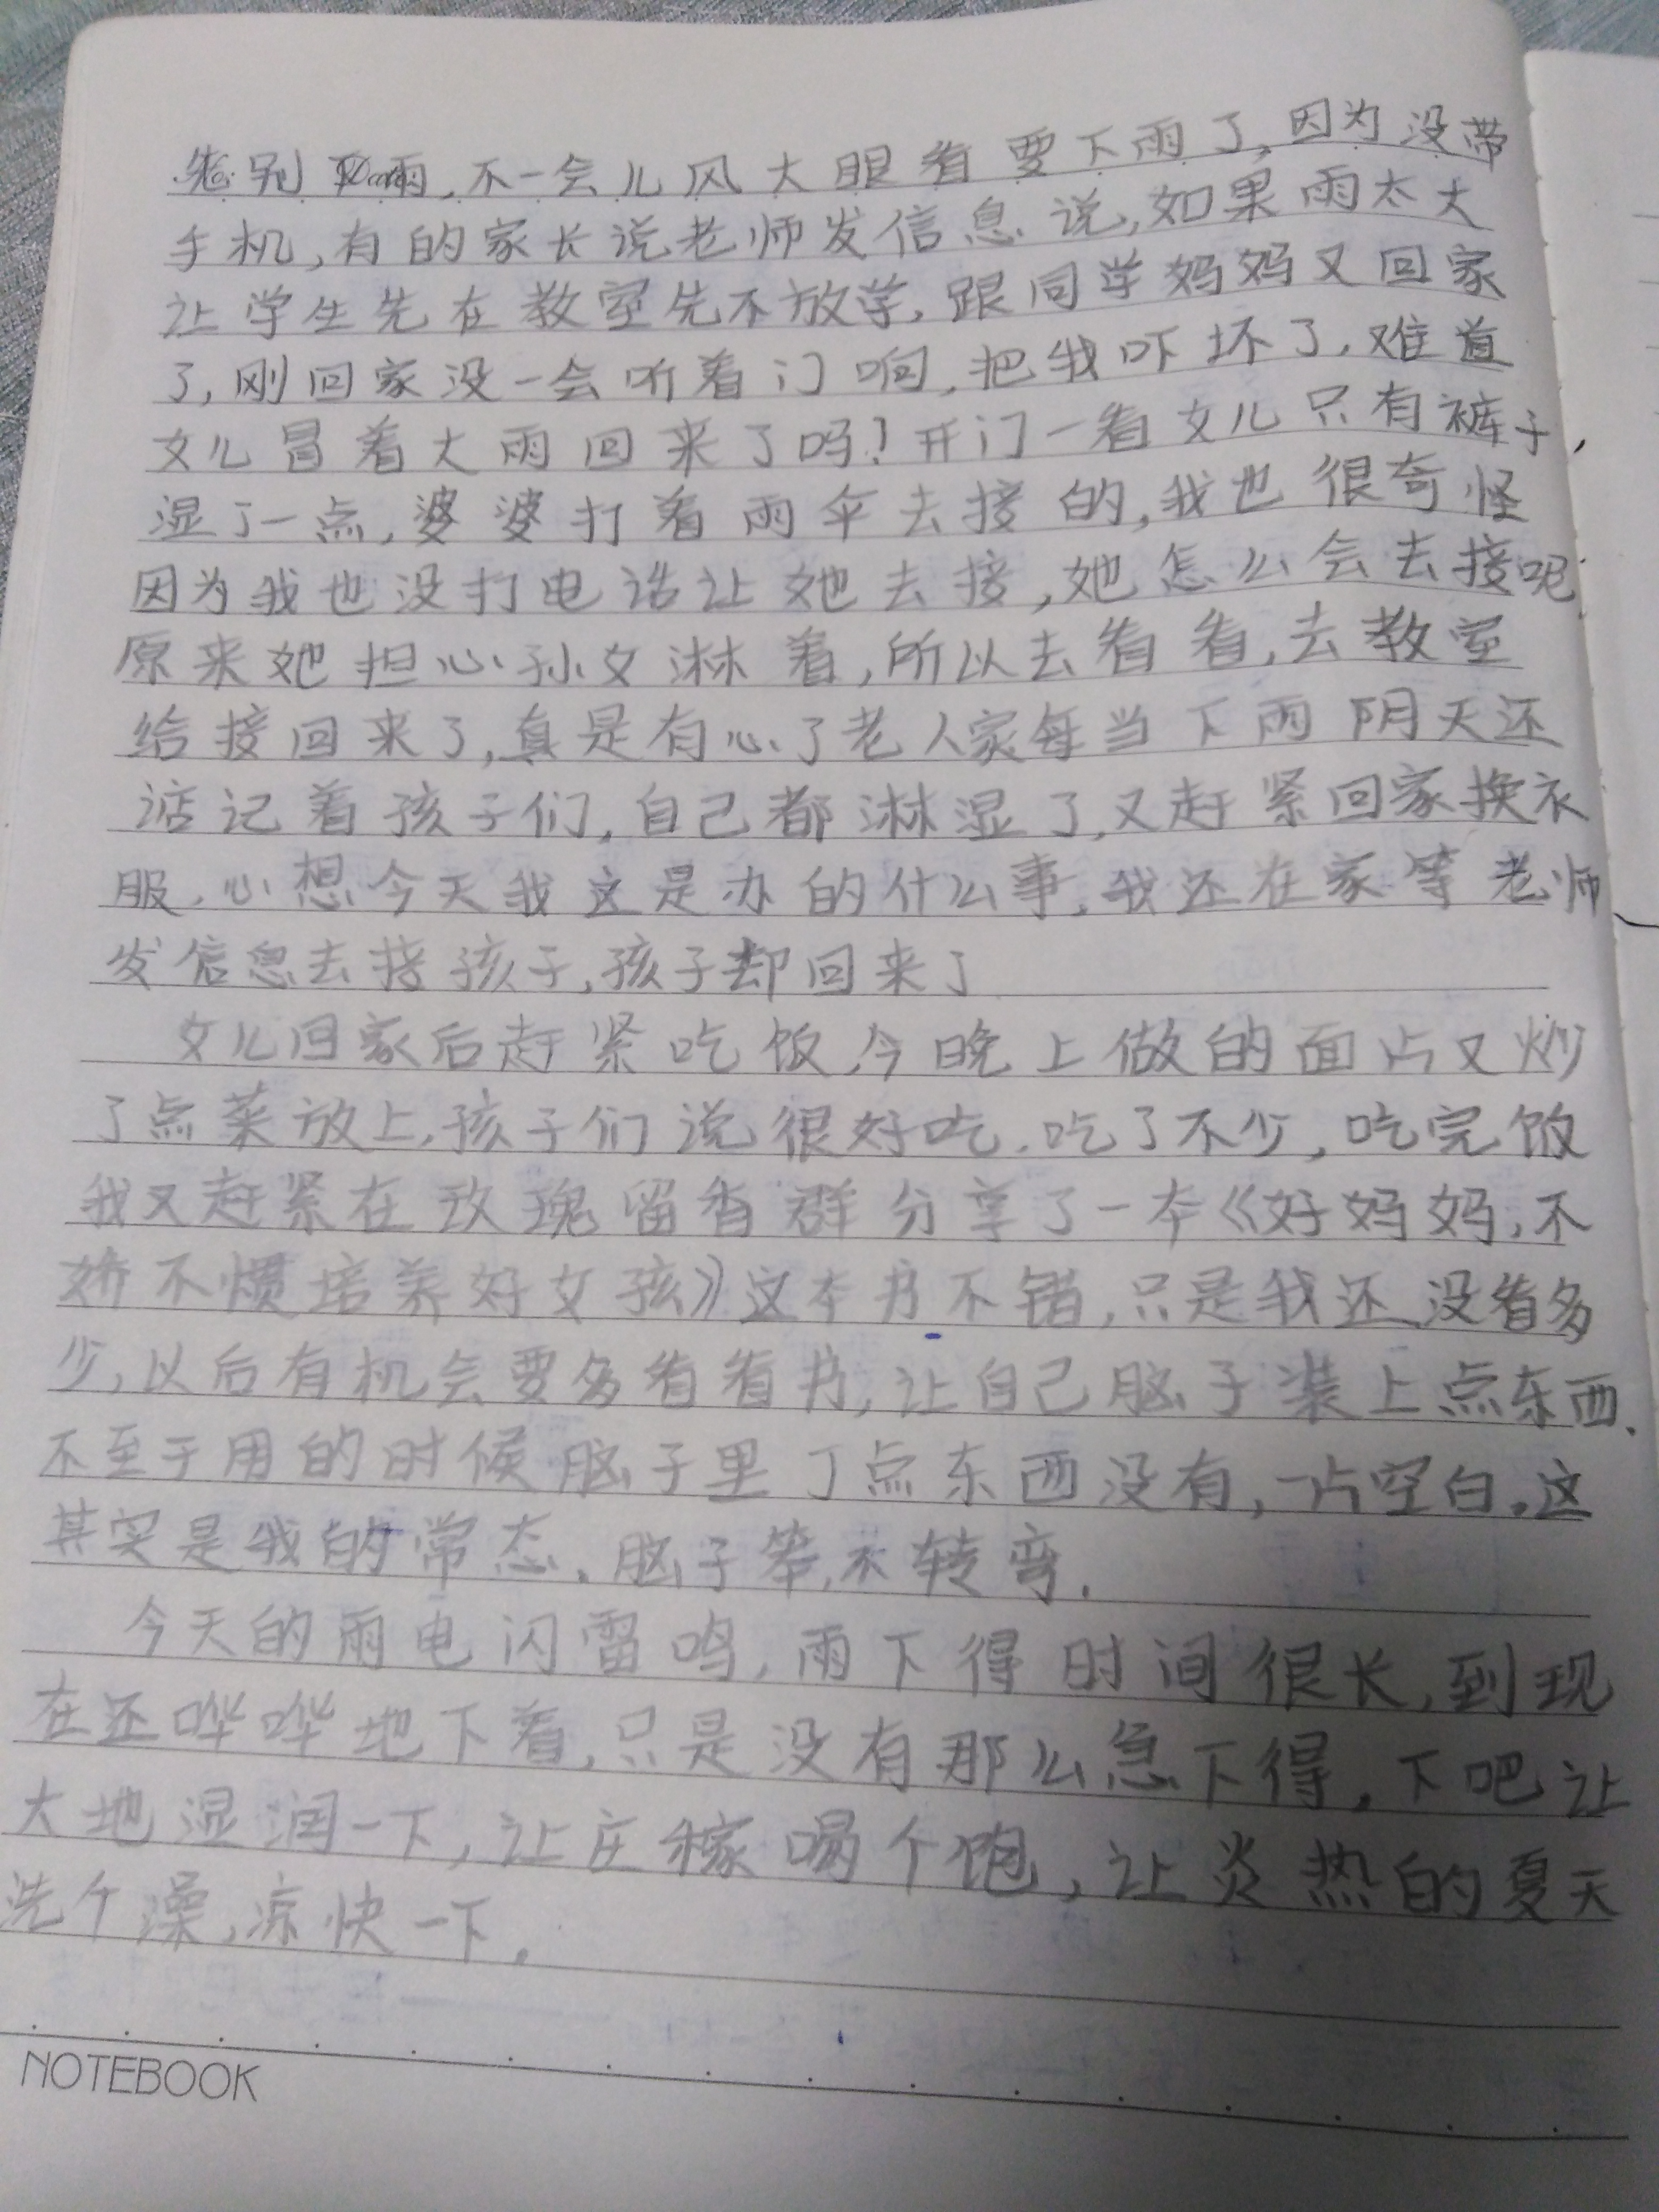 先别下雨,不一会儿风大眼看要下雨了,因为没带
手机,有的家长说老师发信息说,如果雨太大
让学生先在教室先不放学,跟同学妈妈又回家
了,刚回家没一会听着门响,把我吓坏了,难道
女儿冒着大雨回来了吗?开门一看女儿只有裤子,
湿了一点,婆婆打着雨伞去接的,我也很奇怪
因为我也没打电话让她去接,她怎么会去接呢
原来她担心孙女淋着,所以去看看,去教室
给接回来了,真是有心了老人家每当下雨阴天还
惦记着孩子们,自己都淋湿了,又赶紧回家换衣
服,心想今天我这是办的什么事,我还在家等老师
发信息去接孩子,孩子却回来了
女儿回家后赶紧吃饭,今晚上做的面片又炒
了点菜放上,孩子们说很好吃.吃了不少,吃完饭
我又赶紧在玫瑰留香群分享了一本《好妈妈,不
娇不惯培养好女孩》这本书不错,只是我还没看多
少,以后有机会要多看看书,让自己脑子装上点东西.
不至于用的时候脑子里丁点东西没有,一片空白,这
其实是我的常态.脑子笨,不转弯.
今天的雨电闪雷鸣,雨下得时间很长,到现
在还哗哗地下着,只是没有那么急下得,下吧让
大地湿润一下,让庄稼喝个饱,让炎热的夏天
洗个澡,凉快一下.
NOTEBOOK